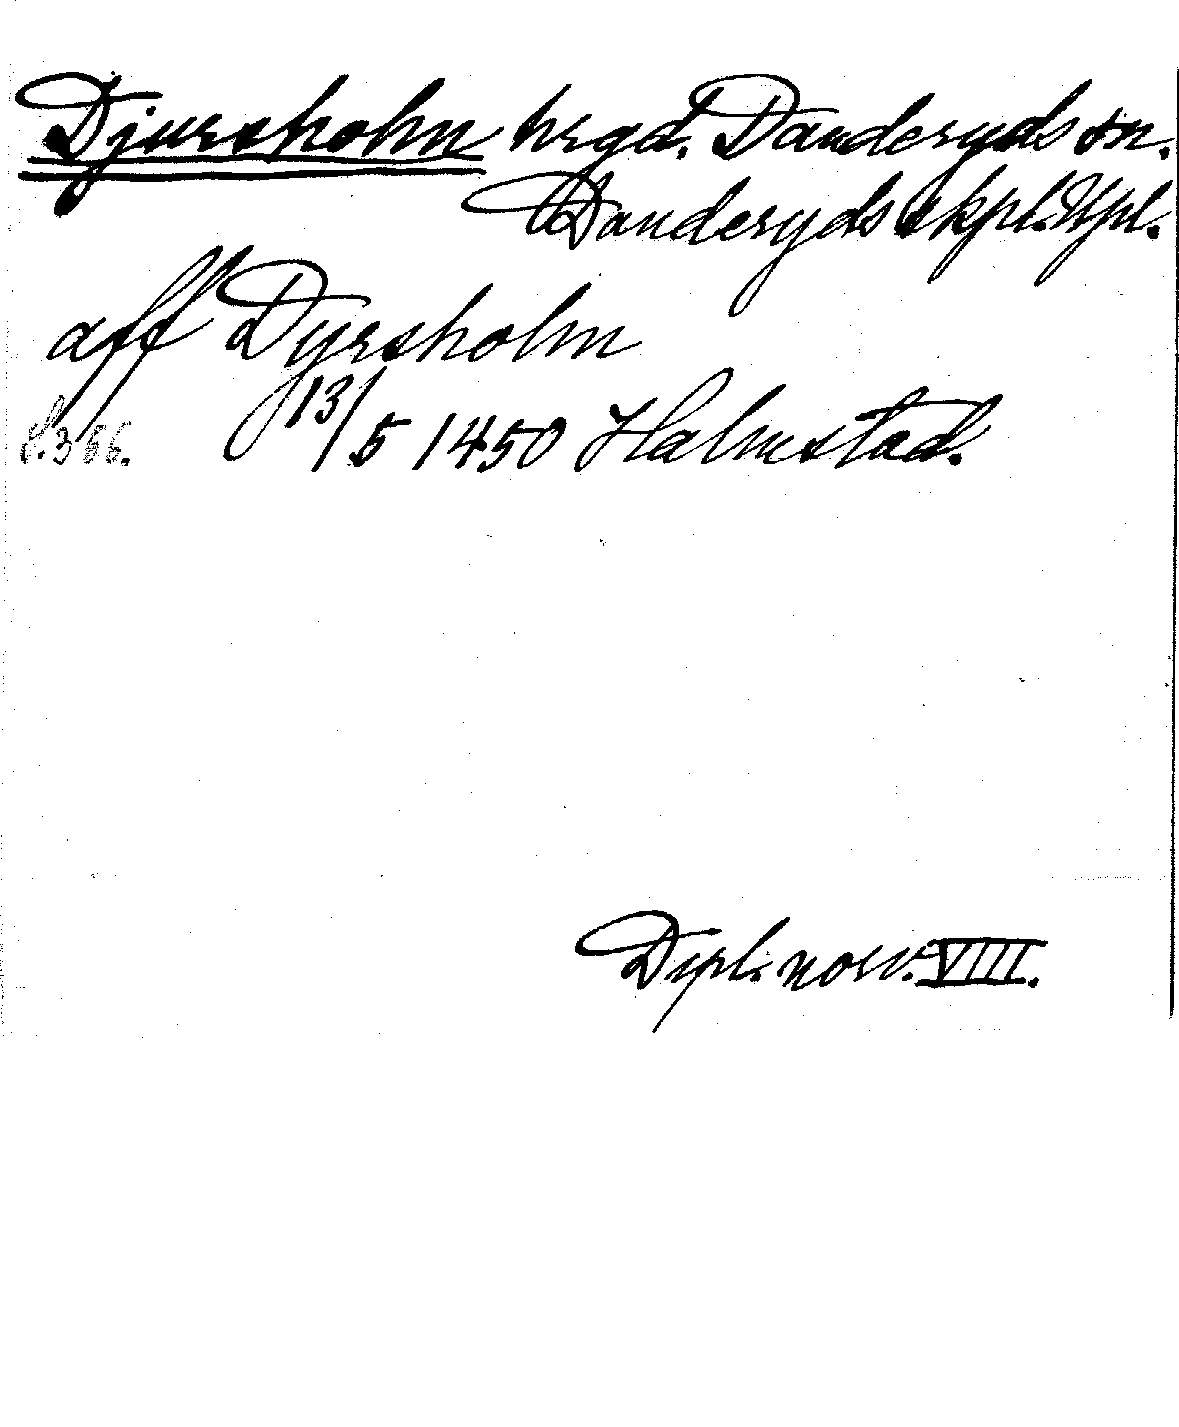 Djursholm hrgd. Danderyds sn.
Danderyds skpl. Upl.
aff Dyrsholm
s. 366. 13/5 1450 Halmstad.
Dipl. norv. VIII.